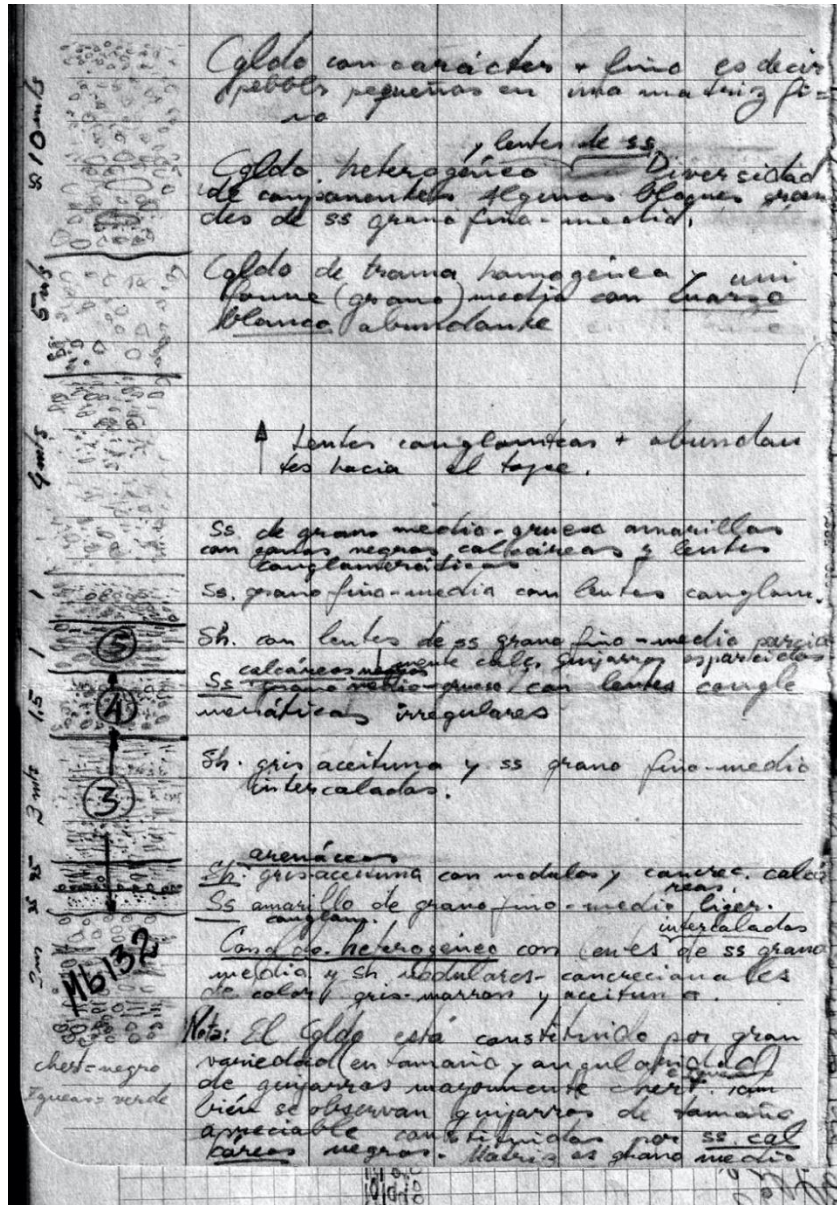 Cgldo con carácter + fino es decir
pebbls pequeñas en una matriz fi-
no
y lentes de ss
Cgldo. heterogéneo Diversidad
de componentes Algunos bloques gran
des de ss grano fino-medio.
Cgldo de trama homogénea y uni
forme (grano) medio con cuarzo
blanco abundante
Lentes conglomiticas + abundan
tes hacia el tope.
Ss. de grano medio-grueso amarillas
con cantos negros calcáreos y lentes
conglomerádicas
Ss. grano fino-medio con lentes conglom.
Sh. con lentes de ss grano fino-medio parcial
mente calc. guijarros esparcidos
calcáreos negros
Ss grano medio-grueso con lentes conglo
meráticas irregulares
Sh. gris aceituna y ss grano fino-medio
intercaladas.
arenáceas
Sh. gris aceituna con nodulos y concrec. calcá
reas.
Ss amarillo de grano fino-medio liger.
conglom.
intercalados
Congldo. heterogéneo con lentes de ss grano
medio y sh nodulares-concrecionales
de color gris-marron y aceituna.
Nota: El Cgldo está constituido por gran
variedad (en tamaño y angularidad)
de guijarros mayormente chert. Tam
bién se observan guijarros de tamaño
apreciable constituidos por ss. cal
cáreas negras. Matriz es grano medio
8 10 mts
5 mts
4 mts
1
1
1.5
3 mts
5
4
3
Mb132
chert=negro
Igneas=verde